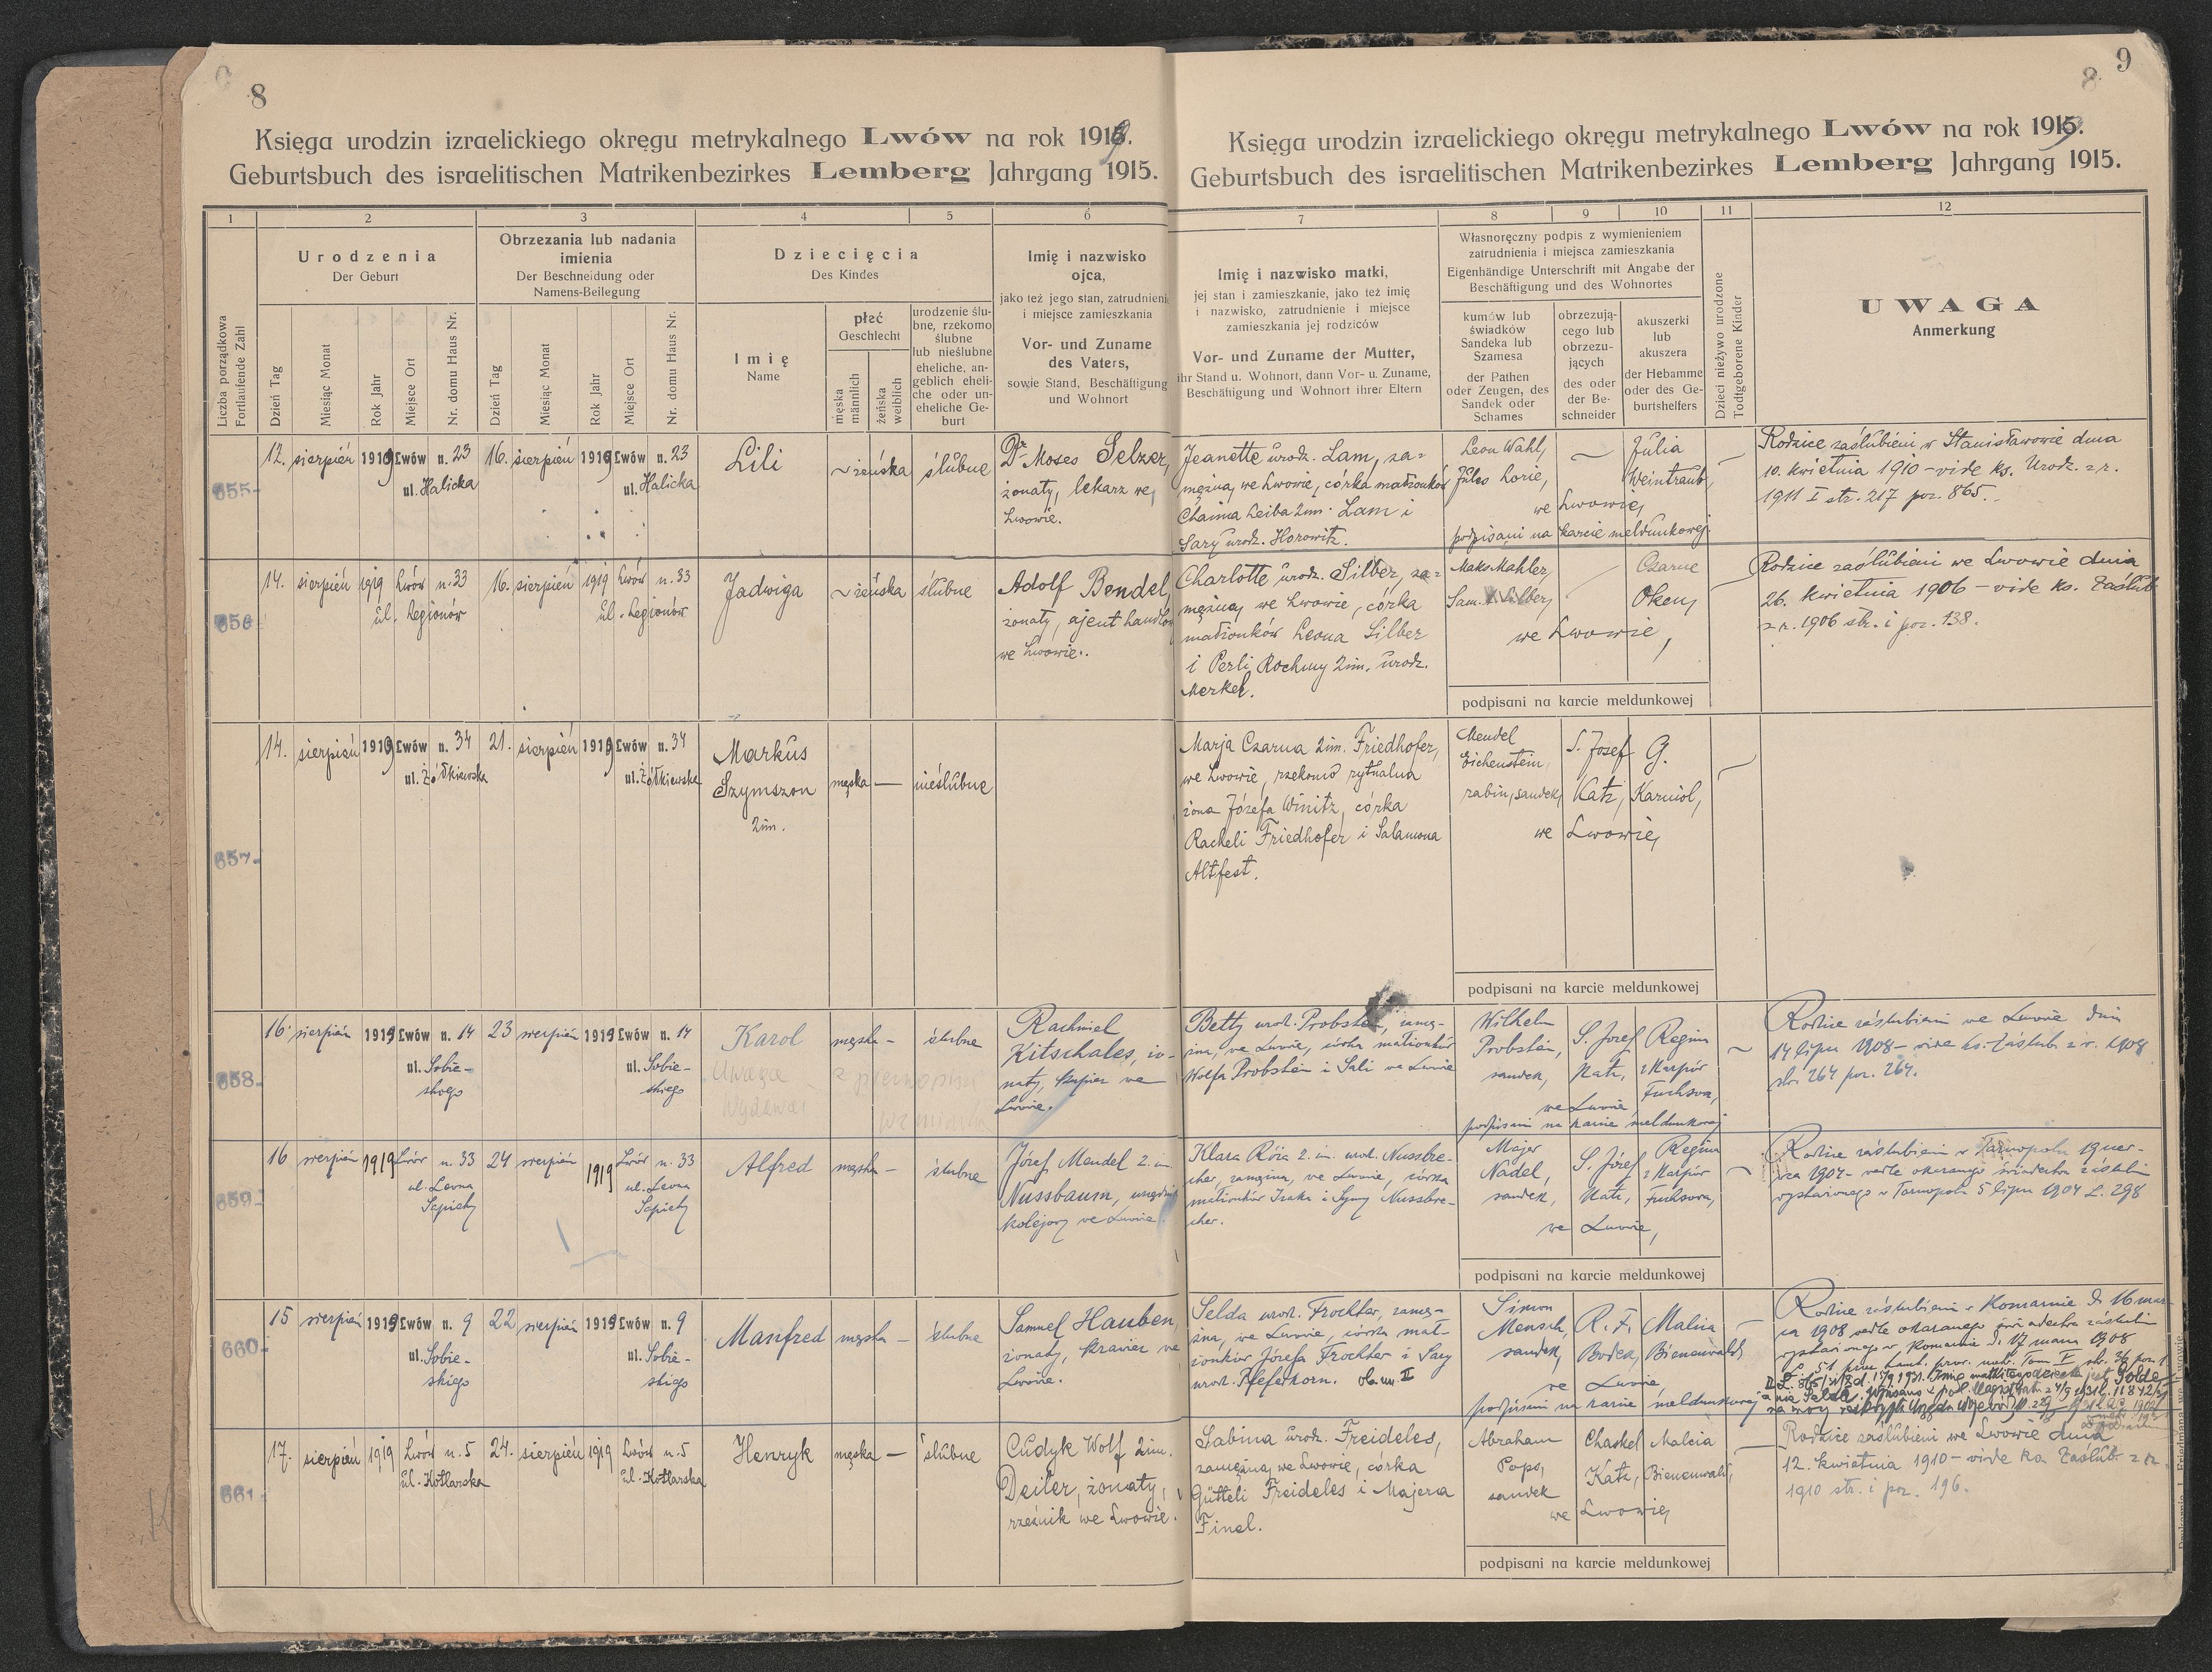 8
Księga urodzin izraelickiego okręgu metrykalnego Lwów na rok 1919.
Geburtsbuch des israelitischen Matrikenbezirkes Lemberg Jahrgang 1915.
1 2 3 4 5 6
Liczba porządkowa
Fortlaufende Zahl
Urodzenia
Der Geburt
Dzień Tag
Miesiąc Monat
Rok Jahr
Miejsce Ort
Nr. domu Haus Nr.
Obrzezania lub nadania
imienia
Der Beschneidung oder
Namens-Beilegung
Dzień Tag
Miesiąc Monat
Rok Jahr
Miejsce Ort
Nr. domu Haus Nr.
Dziecięcia
Des Kindes
Imię
Name
płeć
Geschlecht
męska
männlich
żeńska
weiblich
urodzenie ślu-
bne, rzekomo
ślubne
lub nieślubne
eheliche, an-
geblich eheli-
che oder un-
eheliche Ge-
burt
Imię i nazwisko
ojca,
jako też jego stan, zatrudnienie
i miejsce zamieszkania
Vor- und Zuname
des Vaters,
sowie Stand, Beschäftigung
und Wohnort
9
8.
Księga urodzin izraelickiego okręgu metrykalnego Lwów na rok 1919.
Geburtsbuch des israelitischen Matrikenbezirkes Lemberg Jahrgang 1915.
7 8 9 10 11 12
Imię i nazwisko matki,
jej stan i zamieszkanie, jako też imię
i nazwisko, zatrudnienie i miejsce
zamieszkania jej rodziców
Vor- und Zuname der Mutter,
ihr Stand u. Wohnort, dann Vor- u. Zuname,
Beschäftigung und Wohnort ihrer Eltern
Własnoręczny podpis z wymienieniem
zatrudnienia i miejsca zamieszkania
Eigenhändige Unterschrift mit Angabe der
Beschäftigung und des Wohnortes
kumów lub
świadków
Sandeka lub
Szamesa
der Pathen
oder Zeugen, des
Sandek oder
Schames
obrzezują-
cego lub
obrzezu-
jących
des oder
der Be-
schneider
akuszerki
lub
akuszera
der Hebamme
oder des Ge-
burtshelfers
Dzieci nieżywo urodzone
Todtgeborene Kinder
UWAGA
Anmerkung
655
12. sierpień 1919 Lwów n. 23
ul. Halicka
16. sierpień 1919 Lwów n. 23
ul. Halicka
Lili
~ żeńska ślubne
Dr Moses Selzer,
żonaty, lekarz we
Lwowie.
Jeanette urodz. Lam, za=
mężna, we Lwowie, córka małżonków
Chaima Leiba 2im. Lam i
Sary urodz. Horowitz.
Leon Wahl,
Jules Lorie,
~
Julia
Weintraub,
we Lwowie,
podpisani na karcie meldunkowej
Rodzice zaślubieni w Stanisławowie dnia
10. kwietnia 1910 - vide ks. Urodz. z r.
1911 I str. 217 poz. 865.
656
14. sierpień 1919 Lwów n. 33
ul. Legionów
16. sierpień 1919 Lwów n. 33
ul. Legionów
Jadwiga
~ żeńska ślubne
Adolf Bendel,
żonaty, ajent handlow.
we Lwowie.
Charlotte urodz. Silber, za=
mężna, we Lwowie, córka
małżonków Leona Silber
i Perli Rochmy 2im. urodz.
Merkel.
Maks Mahler,
Sam. Silber,
Czarne
Oken,
we Lwowie,
podpisani na karcie meldunkowej
Rodzice zaślubieni we Lwowie dnia
26. kwietnia 1906 - vide ks. Zaślub.
z r. 1906 str. i poz. 138.
657
14. sierpień 1919 Lwów n. 34
ul. Żółkiewska
21. sierpień 1919 Lwów n. 34
ul. Żółkiewska
Markus
Szymszon
2im.
męska — nieślubne
Marja Czarna 2im. Friedhofer,
we Lwowie, rzekomo rytualna
żona Józefa Winitz, córka
Racheli Friedhofer i Salamona
Altfest.
Mendel
Eichenstein,
rabin, sandek,
S. Josef
Katz,
G.
Karniol,
we Lwowie,
podpisani na karcie meldunkowej
658
16. sierpień 1919 Lwów n. 14
ul. Sobie-
skiego
23 sierpień 1919 Lwów n. 14
ul. Sobie-
skiego
Karol
męska - ślubne
Uwaga z pierwopisu
Rachmiel
Kitschales, żo-
naty, kupiec we
Lwowie.
Betty urodz. Probstein, zamęż-
żna, we Lwowie, córka małżonków
Wolfa Probstein i Sali we Lwowie
Wilhelm
Probstein,
sandek,
S. Josef
Katz,
Regina
z Karpów
Fuchsova,
we Lwowie,
podpisani na karcie meldunkowej
Rodzice zaślubieni we Lwowie dnia
14 lipca 1908 - vide ks. Zaślub. z r. 1908
str. 264 poz. 264.
659
16 sierpień 1919 Lwów n. 33
ul. Leona
Sapiehy
24 sierpień 1919 Lwów n. 33
ul. Leona
Sapiehy
Alfred
męska - ślubne
Józef Mendel 2. im.
Nussbaum, urzędnik
kolejowy we Lwowie.
Klara Róża 2. im. urodz. Nussbre-
cher, zamężna, we Lwowie, córka
małżonków Izaka i Nussbre-
cher.
Majer
Nadel,
sandek,
S. Józef
Katz,
Regina
z Karpów
Fuchsova,
we Lwowie,
podpisani na karcie meldunkowej
Rodzice zaślubieni w Tarnopolu 19 czer-
wca 1904 - wedle okazanego świadectwa zaślubin
wystawionego w Tarnopolu 5 lipca 1904 L. 298
660
15 sierpień 1919 Lwów n. 9
ul. Sobie-
skiego
22 sierpień 1919 Lwów n. 9
ul. Sobie-
skiego
Manfred
męska — ślubne
Samuel Hauben,
żonaty, krawiec we
Lwowie.
Selda urodz. Frochter, zamęż-
żna, we Lwowie, córka mał-
żonków Józefa Frochter i Sary
urodz. Pfeferkorn. ob. uw. II
Simon
Mensch,
sandek,
R. F.
Bodek,
Malcia
Bienenwald,
we Lwowie
podpisani na karcie meldunkowej
Rodzice zaślubieni w Komarnie d. 16 mar-
ca 1908 wedle okazanego świadectwa zaślubin
wystawionego w Komarnie d. 17 marca 1908
a nie Selda.
661
17. sierpień 1919 Lwów n. 5
ul. Kotlarska
24. sierpień 1919 Lwów n. 5
ul. Kotlarska
Henryk
męska — ślubne
Cudyk Wolf 2im.
Deiler, żonaty,
rzeźnik we Lwowie.
Sabina urodz. Freideles,
zamężna, we Lwowie, córka
Gütteli Freideles i Majera
Finel.
Abraham
Pops,
sandek
Chaskel
Katz,
Malcia
Bienenwald,
we Lwowie,
podpisani na karcie meldunkowej
Rodzice zaślubieni we Lwowie dnia
12. kwietnia 1910 - vide ks. Zaślub. z r.
1910 str. i poz. 196.